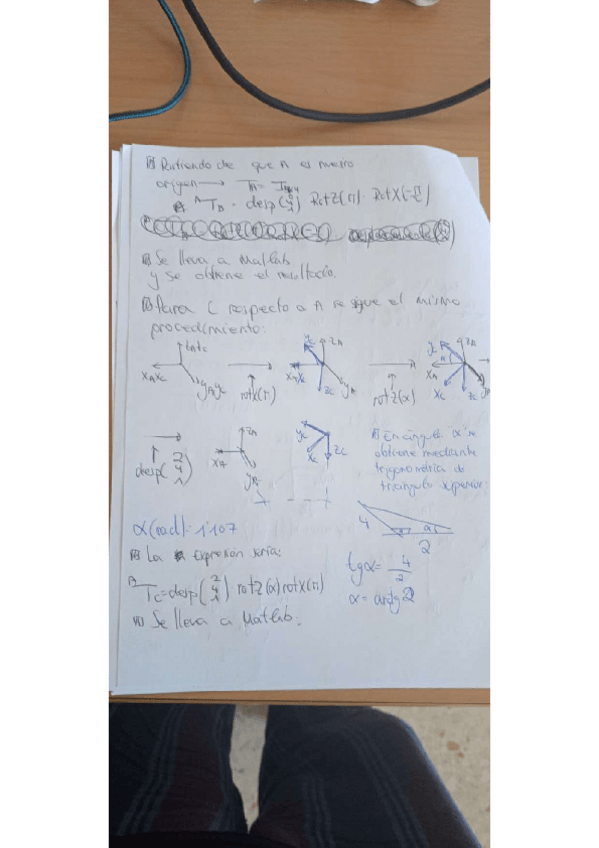 Partiendo de que A es nuestro
origen → TA = I4x4
ATB = desp(2 4 1) RotZ(π) · RotX(-π/2)
Se lleva a Matlab
y se obtiene el resultado.
Para C respecto a A se sigue el mismo
procedimiento:
ZAZC
XAXC
YAYC
rotX(π)
YC
ZA
XAXC
YA
ZC
rotZ(α)
YC
ZA
XA
XC
ZC
YA
desp(2 4 1)
ZA
XA
YA
YC
XC
ZC
En ángulo "α" se
obtiene mediante
trigonometría de
triángulo superior:
4
α
2
α(rad): 1'107
La expresión sería:
tgα = 4/2
ATC = desp(2 4 1) rotZ(α) rotX(π)
α = arctg 2
Se lleva a Matlab: